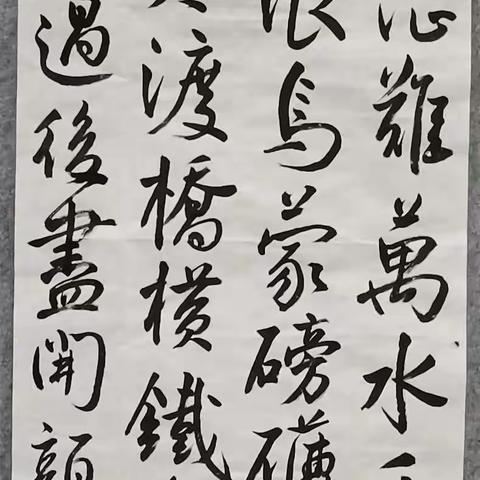 難萬水千
浪烏蒙磅礴
渡橋横鐵
過後盡開顔